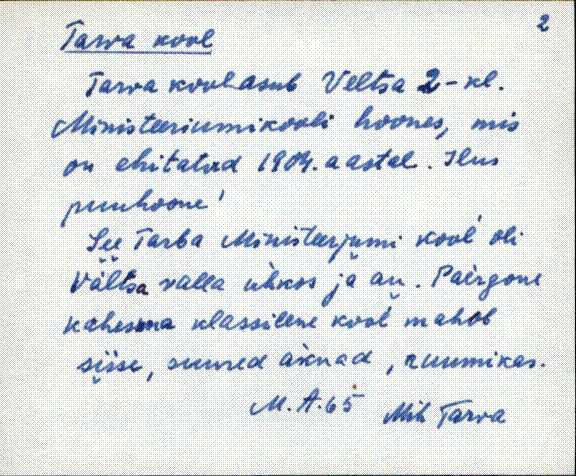 2
Tarva kool
Tarva kool asub Veltsa 2-kl.
Ministeeriumikooli hoones, mis
on ehitatud 1904. aastal. Ilus
puuhoone!
See Tarba Ministeerjumi kool oli
Vältsa valla ühkos ja au. Paergone
kahesma klassilene kool mahob
siise, suured aknad, ruumikas.
M. A. 65 Mih Tarva